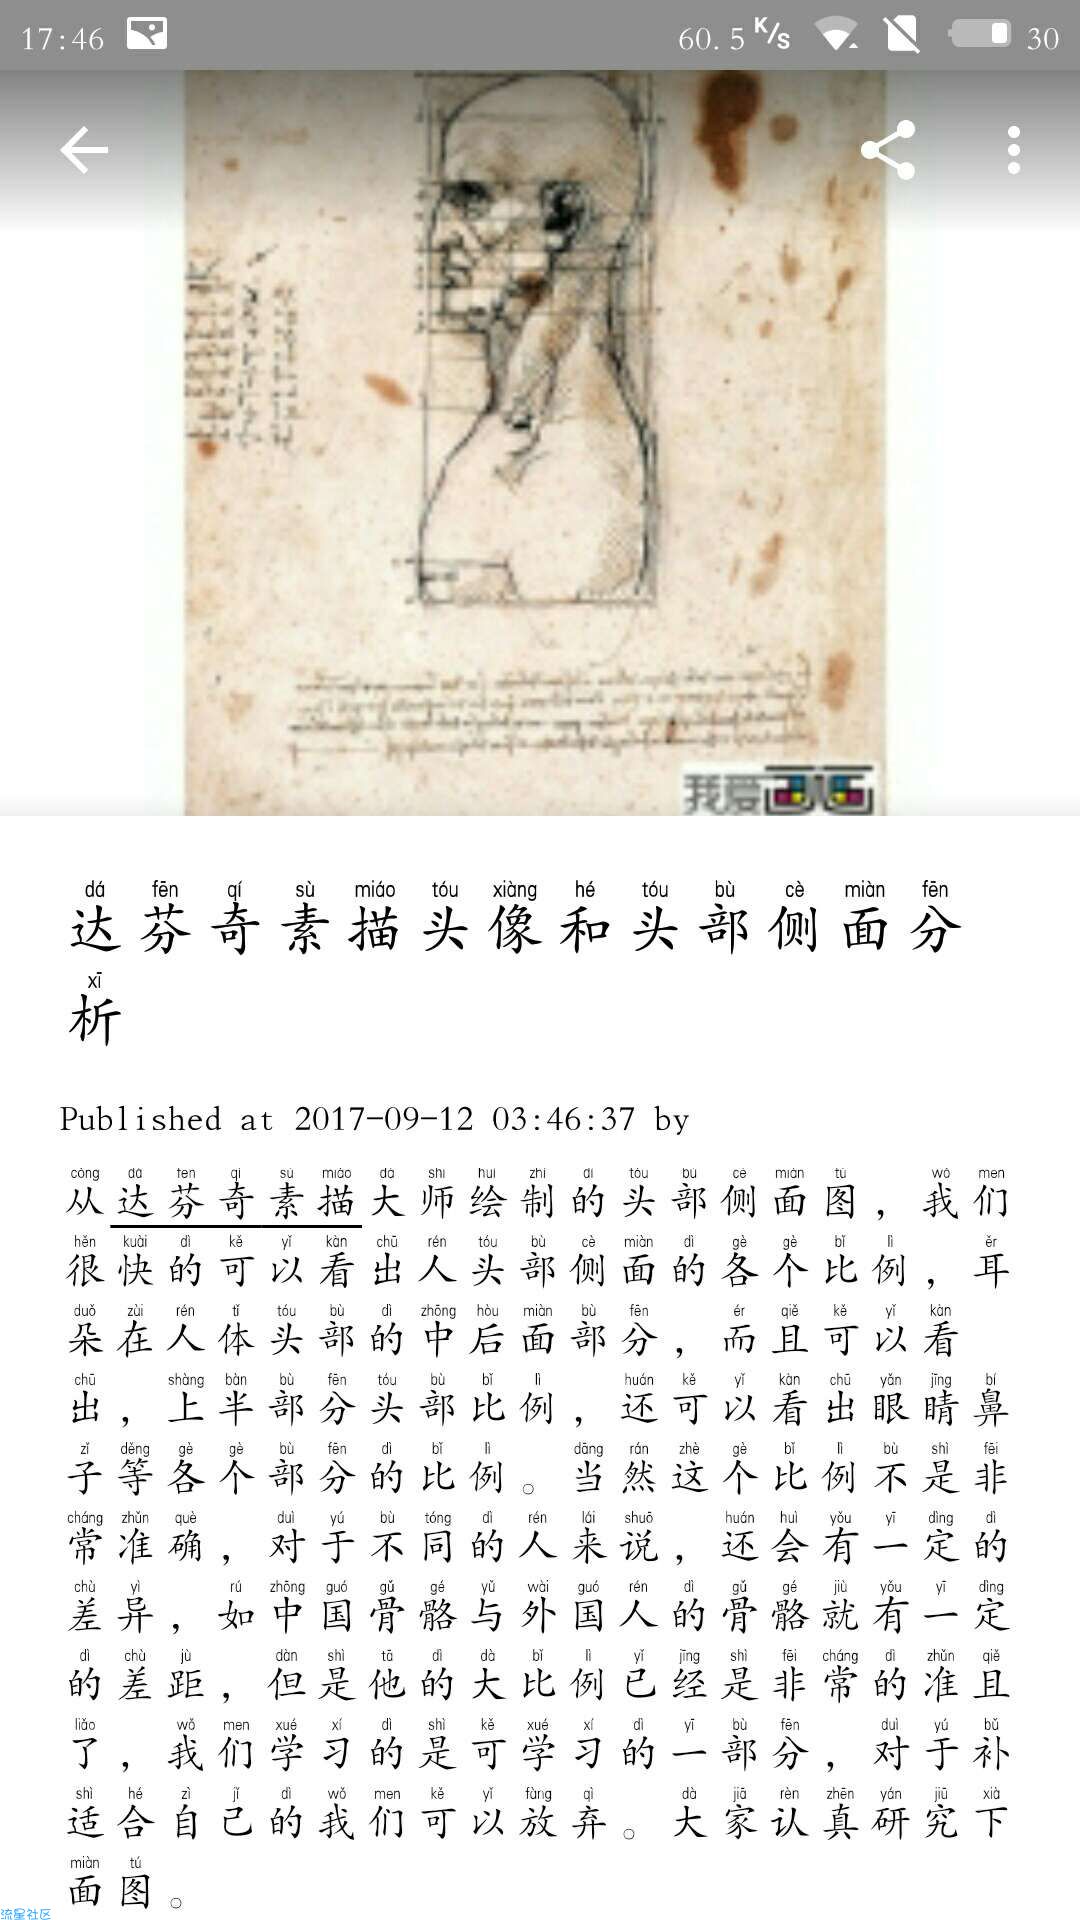 17:46
60.5 K/S
30
我爱画画
dá fēn qí sù miáo tóu xiàng hé tóu bù cè miàn fēn
达芬奇素描头像和头部侧面分
xī
析
Published at 2017-09-12 03:46:37 by
cóng dá fēn qí sù miáo dà shī huì zhì dì tóu bù cè miàn tú wǒ men
从达芬奇素描大师绘制的头部侧面图，我们
hěn kuài dì kě yǐ kàn chū rén tóu bù cè miàn dì gè gè bǐ lì ěr
很快的可以看出人头部侧面的各个比例，耳
duǒ zùi rén tǐ tóu bù dì zhōng hòu miàn bù fēn ér qiě kě yǐ kàn
朵在人体头部的中后面部分，而且可以看
chū shàng bàn bù fēn tóu bù bǐ lì huán kě yǐ kàn chū yǎn jīng bí
出，上半部分头部比例，还可以看出眼睛鼻
zǐ děng gè gè bù fēn dì bǐ lì dāng rán zhè gè bǐ lì bù shì fēi
子等各个部分的比例。当然这个比例不是非
cháng zhǔn què duì yú bù tóng dì rén lái shuō huán huì yǒu yī dìng dì
常准确，对于不同的人来说，还会有一定的
chù yì rú zhōng guó gǔ gé yǔ wài guó rén dì gǔ gé jiù yǒu yī dìng
差异，如中国骨骼与外国人的骨骼就有一定
dì chù jù dàn shì tā dì dà bǐ lì yǐ jīng shì fēi cháng dì zhǔn qiě
的差距，但是他的大比例已经是非常的准且
liǎo wǒ men xué xí dì shì kě xué xí dì yī bù fēn duì yú bǔ
了，我们学习的是可学习的一部分，对于补
shì hé zì jǐ dì wǒ men kě yǐ fàng qì dà jiā rèn zhēn yán jiū xià
适合自己的我们可以放弃。大家认真研究下
miàn tú
面图。
流星社区